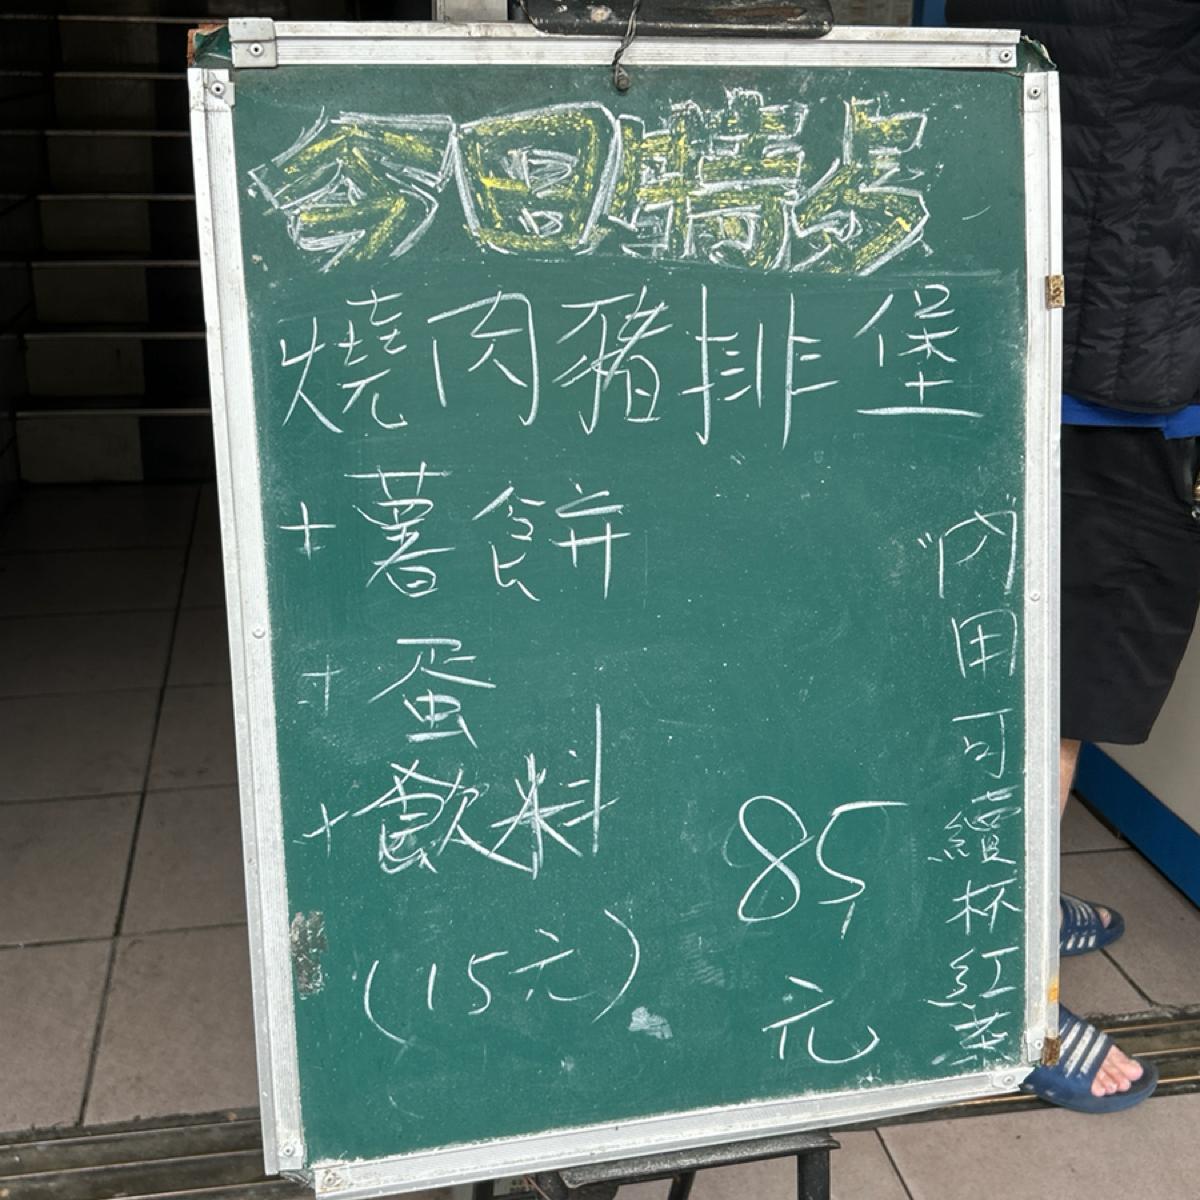 今日特点
燒肉豬排堡
+薯餅
+蛋
+飲料
(15元)
85
元
"內用可續杯紅茶